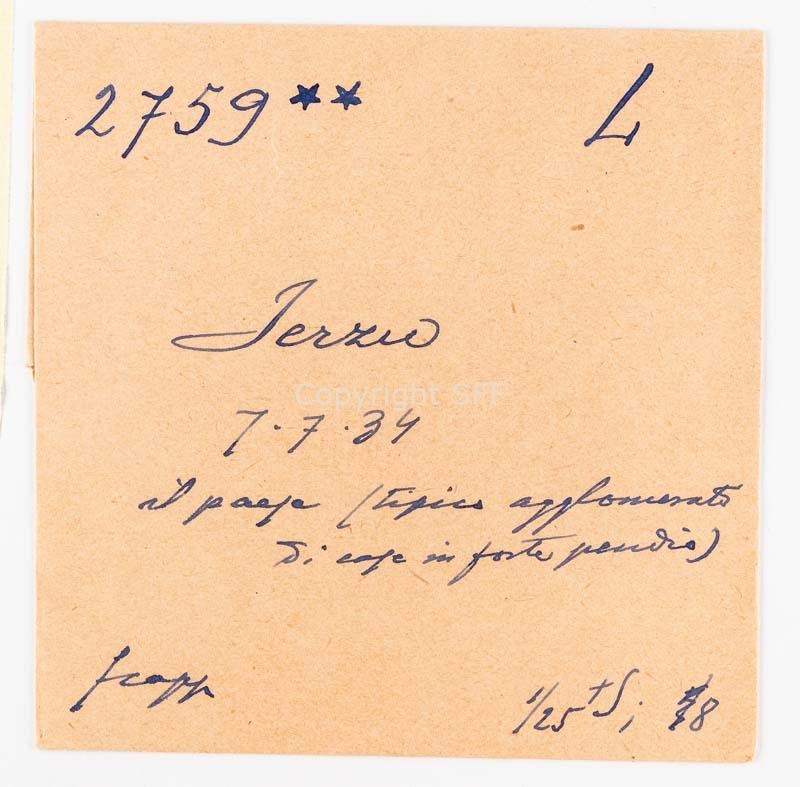 2759 ** L
Jerzu
Copyright SFF
7.7.34
il paese (tipico agglomerato
di case in forte pendio)
1/25 + S; 18